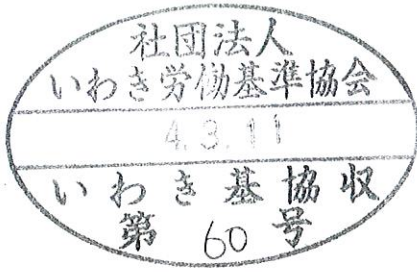 社団法人
いわき労働基準協会
4.3.11
いわき基協収
第 60 号